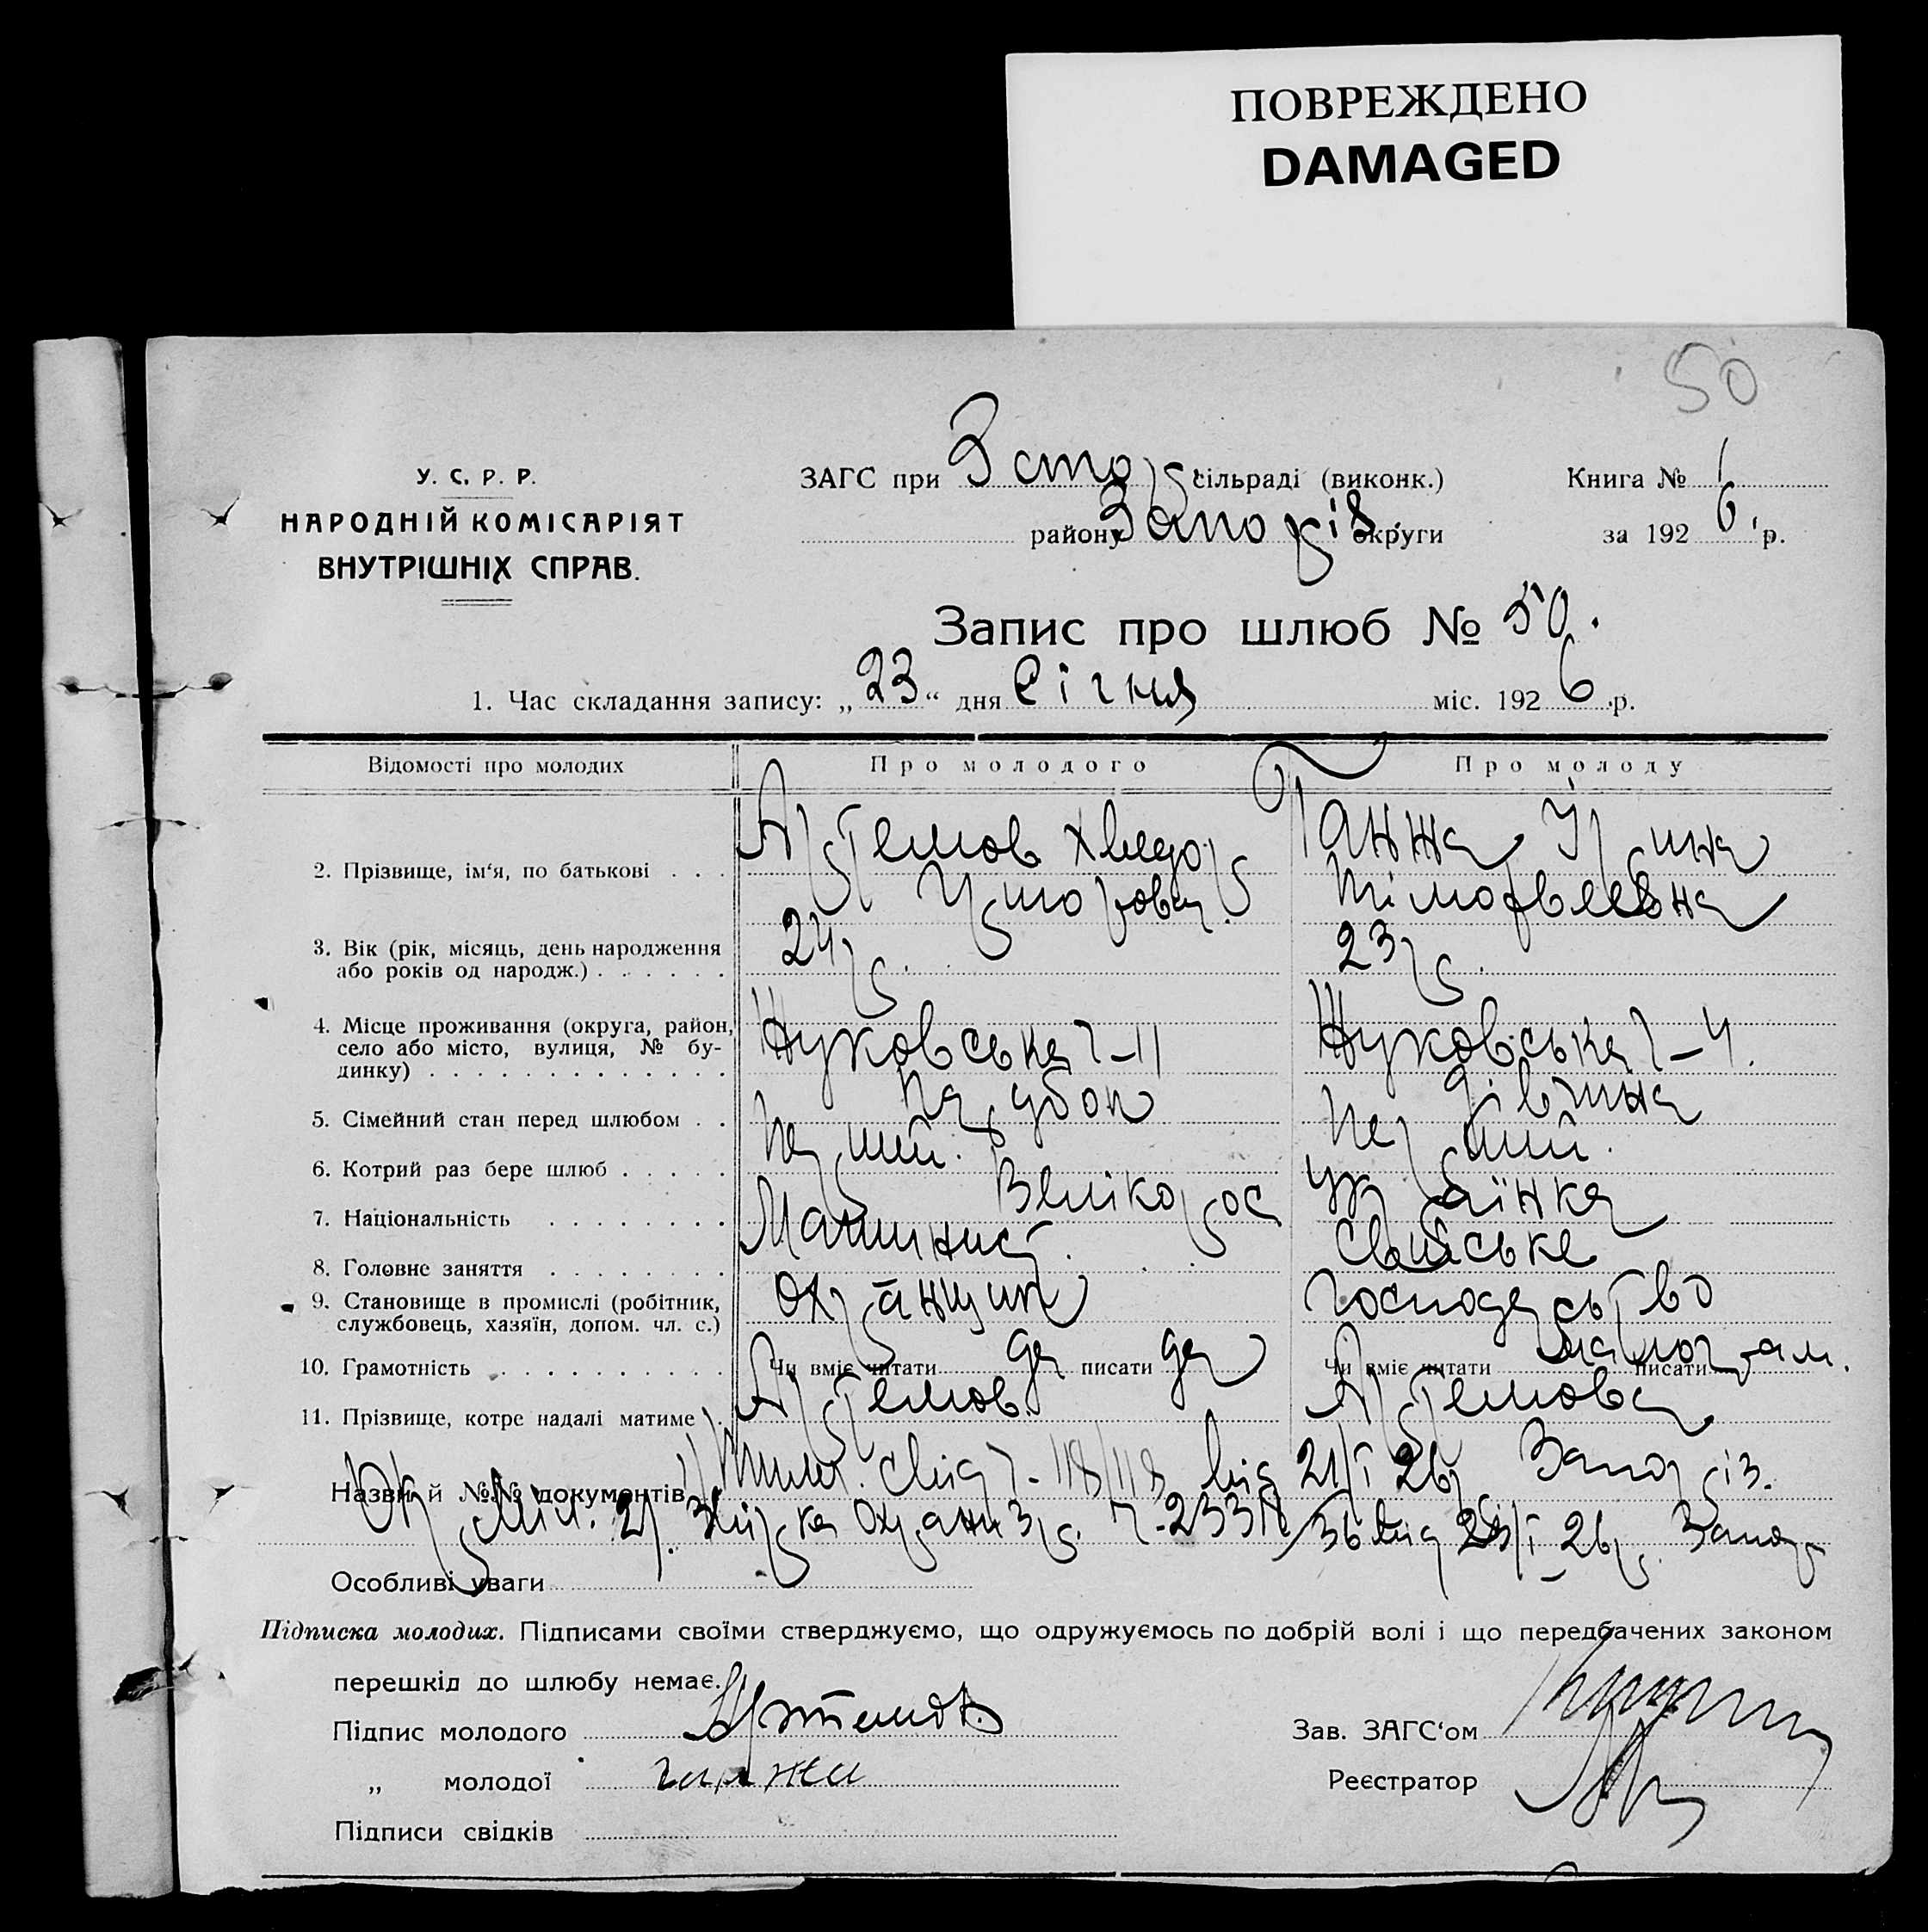 ПОВРЕЖДЕНО
DAMAGED
50
У. С. Р. Р.
НАРОДНІЙ КОМІСАРІЯТ
ВНУТРІШНІХ СПРАВ.
ЗАГС при сільраді (виконк.)
району Запоріз. округи
Книга № 1
за 1926 р.
Запис про шлюб № 50.
1. Час складання запису: „23“ дня Січня міс. 1926 р.
Відомості про молодих Про молодого Про молоду
2. Прізвище, ім‘я, по батькові . . . Артемов Хведор Ганжа Ірина
Тімофѣевна
3. Вік (рік, місяць, день народження 24 р. 23 р.
або років од народж.) . . . . . .
4. Місце проживання (округа, район, Жуковська Жуковська
село або місто, вулиця, № бу-
динку) . . . . . . . . . . . . .
5. Сімейний стан перед шлюбом . . Парубок Дівчина
6. Котрий раз бере шлюб . . . . . Перший. Перший.
7. Національність . . . . . . . . Велікорос Українка
8. Головне заняття . . . . . . . . Машиніст. Сельське
9. Становище в промислі (робітник, Охранщик господарство
службовець, хазяїн, допом. чл. с.)
10. Грамотність . . . . . . . . . . Чи вміє читати да писати да Чи вміє читати писати малограм.
11. Прізвище, котре надалі матиме . Артемов. Артемова
Назви й №№ документів від 21/I 26 р. Запоріз.
Окр. Міл. 2). 26 р. Запор
Особливі уваги
Підписка молодих. Підписами своїми стверджуємо, що одружуємось по добрій волі і що передбачених законом
перешкід до шлюбу немає.
Підпис молодого Артемов.
„ молодої ганжа
Підписи свідків
Зав. ЗАГС‘ом
Реєстратор